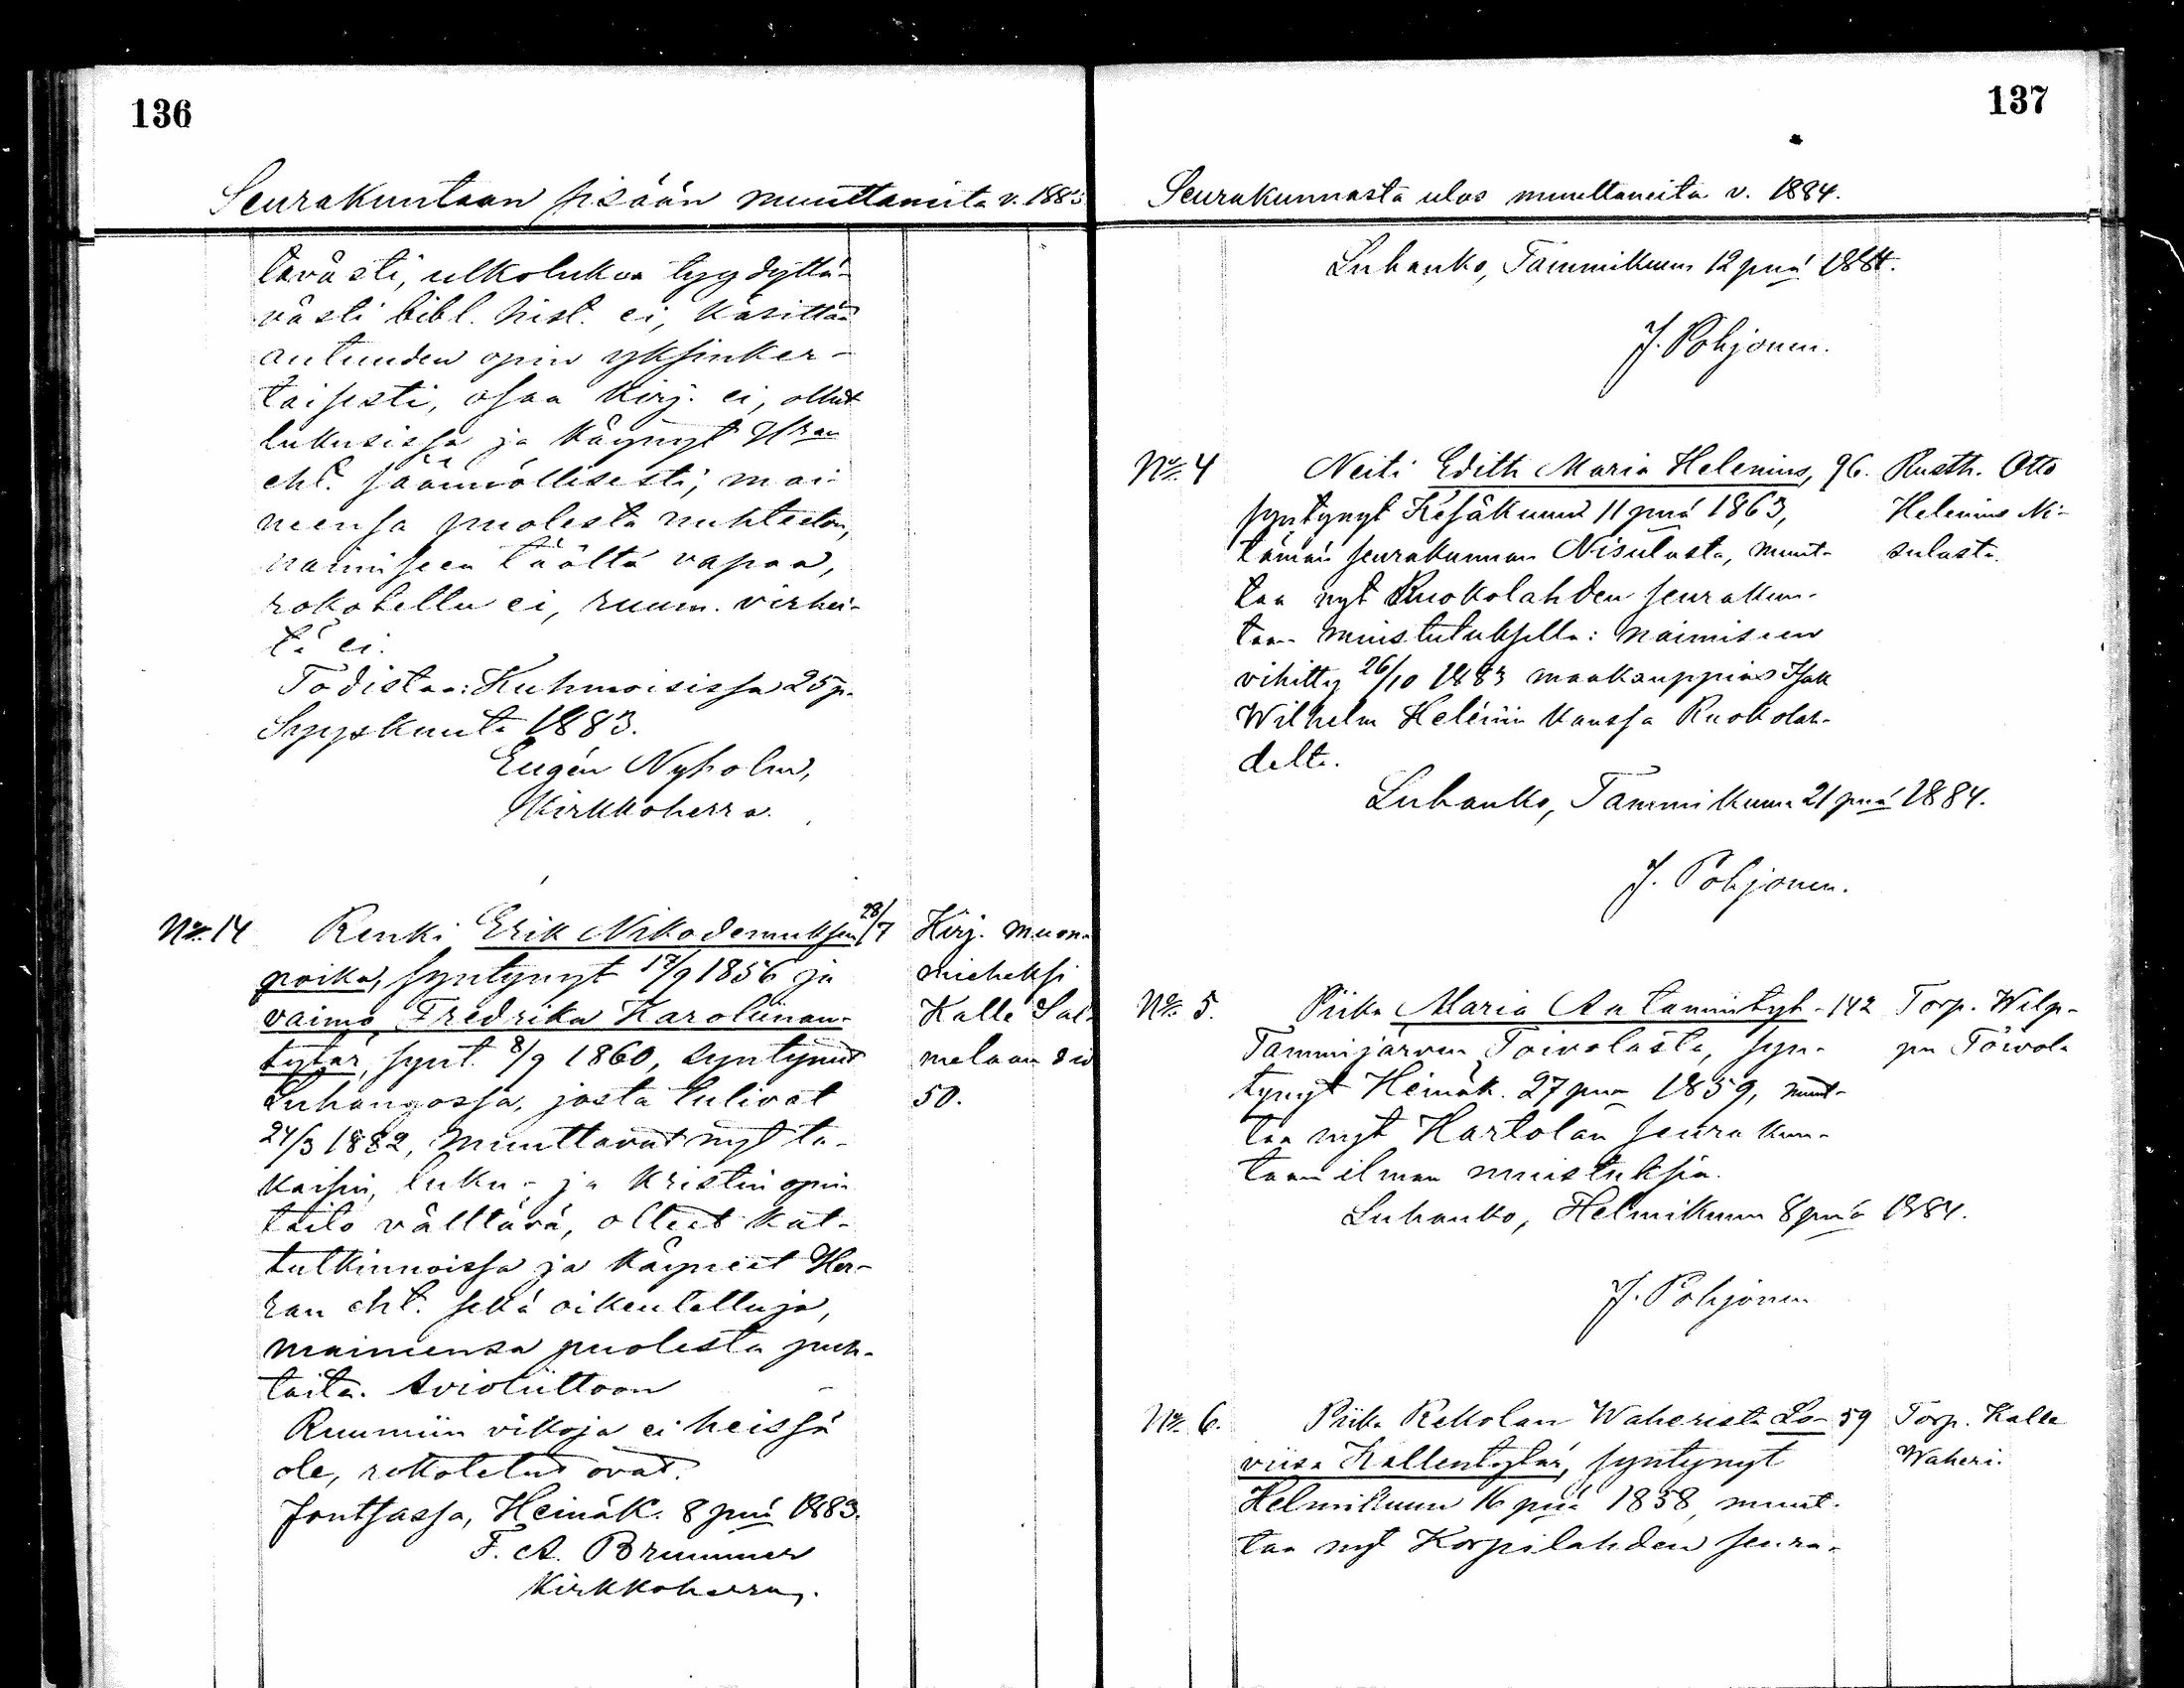 136
Seurakuntaan sisään muuttaneita v. 1883
tävästi, ulkolukua tyydyttä-
västi bibl. hist. ei, käsittää
autuuden opin yksinker-
taisesti, osaa kirj. ei, ollut
lukusissa ja käynyt Hran
eht. säännöllisesti, mai-
neensa puolesta nuhteeton,
naimiseen täältä vapaa,
rokotettu ei, ruum. virhei-
tä ei.
Todistaa: Kuhmoisissa 25 p.
Syyskuuta 1883.
Eugén Nyholm,
Kirkkoherra.
No. 14 Renki Erik Nikodemuksen 28/7 Kirj. muon-
poika, syntynyt 17/9 1856 ja mieheksi
vaimo Fredrika Karoliinan- Kalle Sal-
tytär, synt. 8/9 1860, syntyneet
50.
Luhangossa, josta tulivat
24/3 1882, muuttavat nyt ta-
kaisin, luku- ja kristin opin
taito välttävä, olleet kat-
tutkinnoissa ja käyneet Her-
ran eht. sekä oikeutettuja,
maineensa puolesta puh-
taita. Avioliittoon -
Ruumiin vikoja ei heissä
ole, rokotetut ovat.
Joutsassa, Heinäk. 8 pnä 1883.
F. A. Brummer
Kirkkoherra.
137
Seurakunnasta ulos muuttaneita v. 1884.
Luhanko, Tammikuun 12 pnä 1884.
J. Pohjonen.
No. 4 Neiti Edith Maria Helenius, 96. Rusth. Otto
syntynyt Kesäkuun 11 pnä 1863, Helenius Ni-
tämän seurakunnan Nisulasta, muut- sulasta.
taa nyt Ruokolahden seurakun-
taan muistutuksella: naimiseen
vihitty 26/10 1883 maakauppias Isak
Wilhelm Heleniin kanssa Ruokolah-
delta.
Luhanko, Tammikuun 21 pnä 1884.
J. Pohjonen.
No. 5. Piika Maria Antamintyt. 142 Torp. Wilp-
Tammijärven Toivolasta, syn- pu Toivola
tynyt Heinäk. 27 pnä 1859, muut-
taa nyt Hartolan seurakun-
taan ilman muistuksia.
Luhanko, Helmikuun 8 pnä 1884.
J. Pohjonen
No. 6. Piika Rekolan Waherista Lo- 59 Torp. Kalle
viisa Kallentytär, syntynyt Waheri.
Helmikuun 16 pnä 1858, muut-
taa nyt Korpilahden seura-